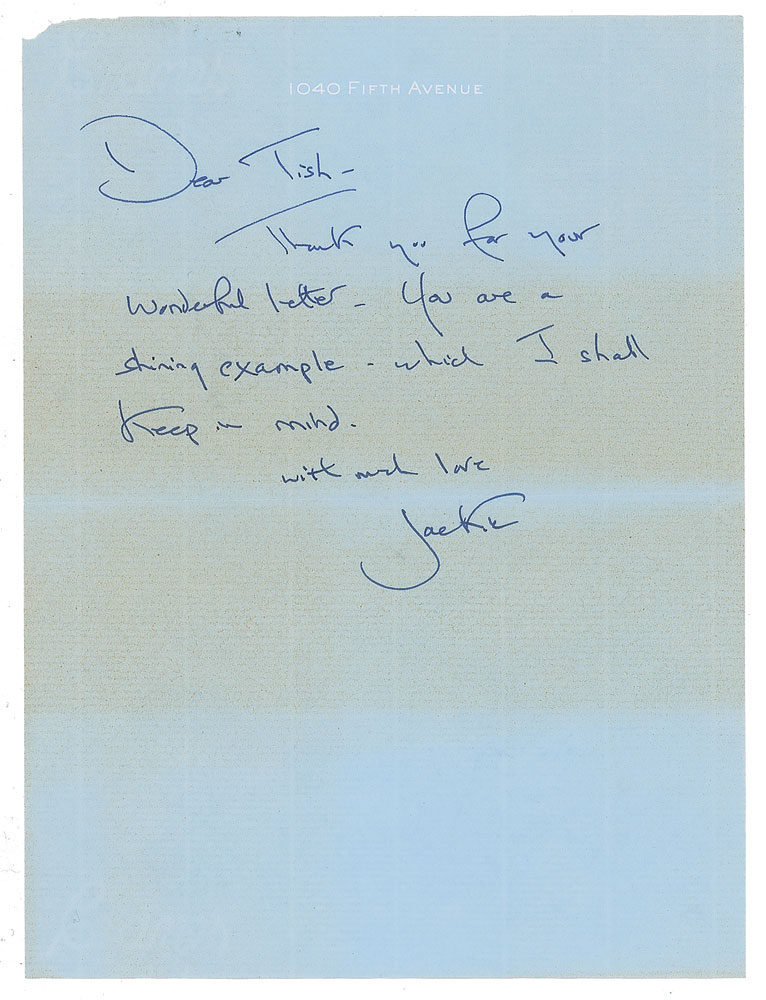 1040 FIFTH AVENUE
Dear Tish -
Thank you for your
wonderful letter - You are a
shining example - which I shall
keep in mind.
with much love
Jackie